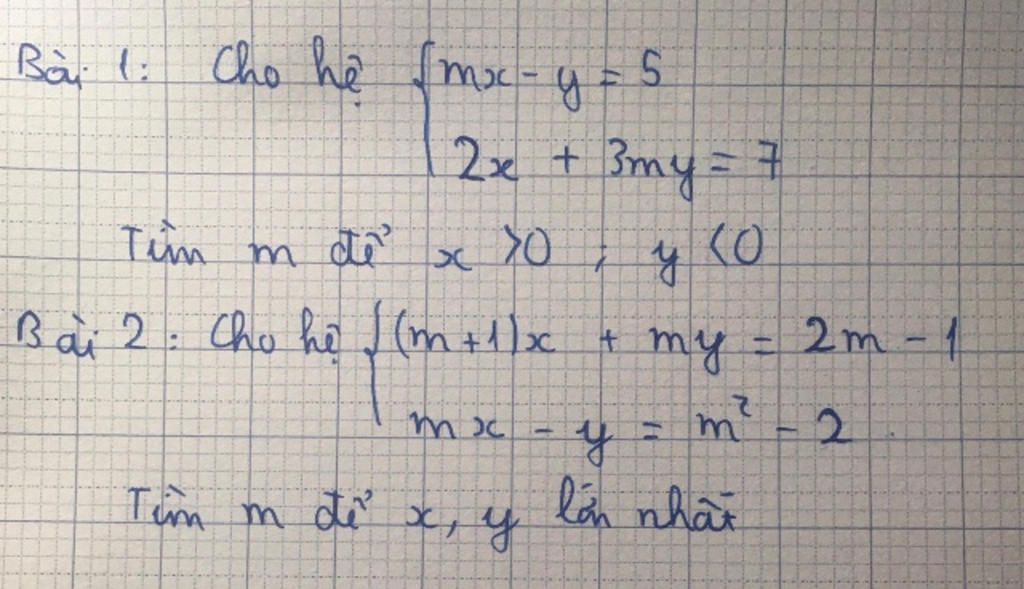 Bài 1: Cho hệ { mx - y = 5
2x + 3my = 7
Tìm m để x > 0 ; y < 0
Bài 2 : Cho hệ { (m+1)x + my = 2m - 1
mx - y = m² - 2
Tìm m để x, y lớn nhất